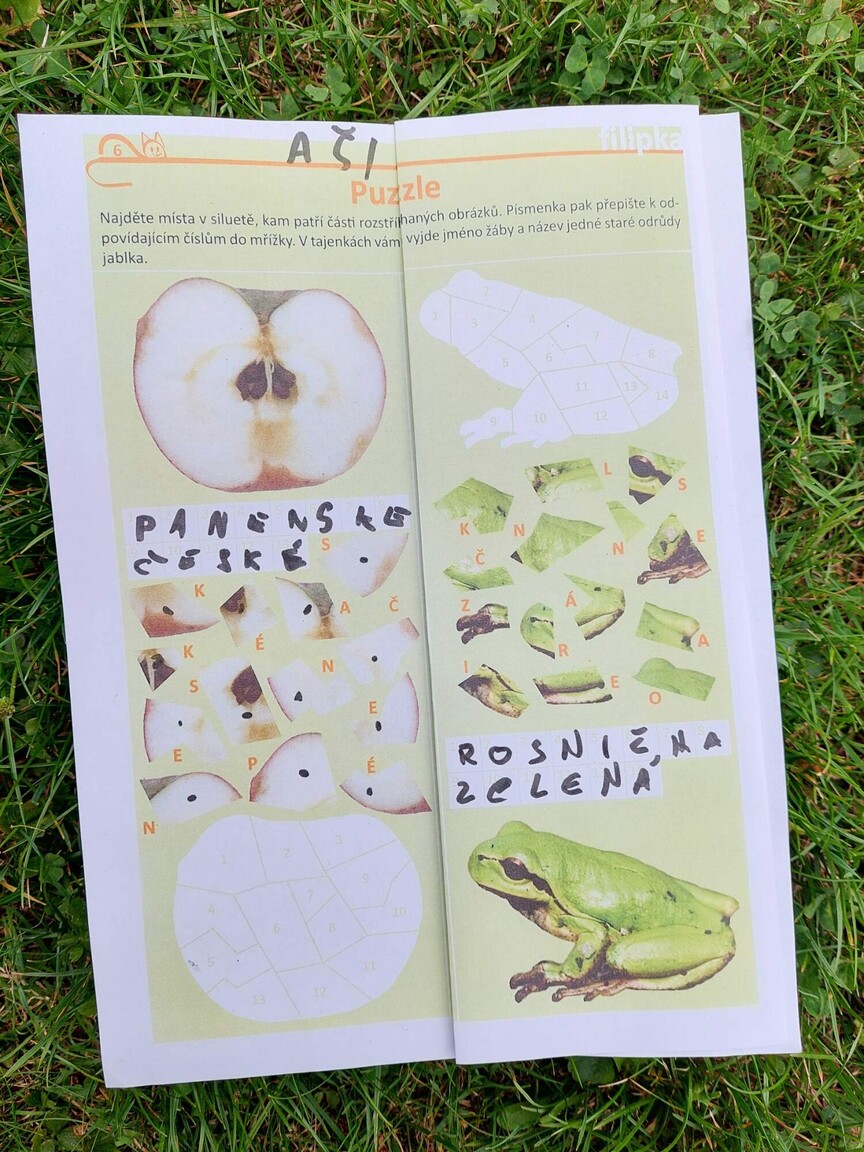 6
A ČI
filipka
Puzzle
Najděte místa v siluetě, kam patří části rozstříhaných obrázků. Písmenka pak přepište k od-
povídajícím číslům do mřížky. V tajenkách vám vyjde jméno žáby a název jedné staré odrůdy
jablka.
PANENSKE
ČESKÉ
S
K
É
A
Č
K
S
N
E
E
P
É
N
1
2
3
4
5
6
7
8
9
10
11
12
13
1
2
3
4
5
6
7
8
9
10
11
12
13
14
L
S
K
N
N
E
Č
Z
Á
R
A
I
E
O
ROSNIČKA
ZELENÁ